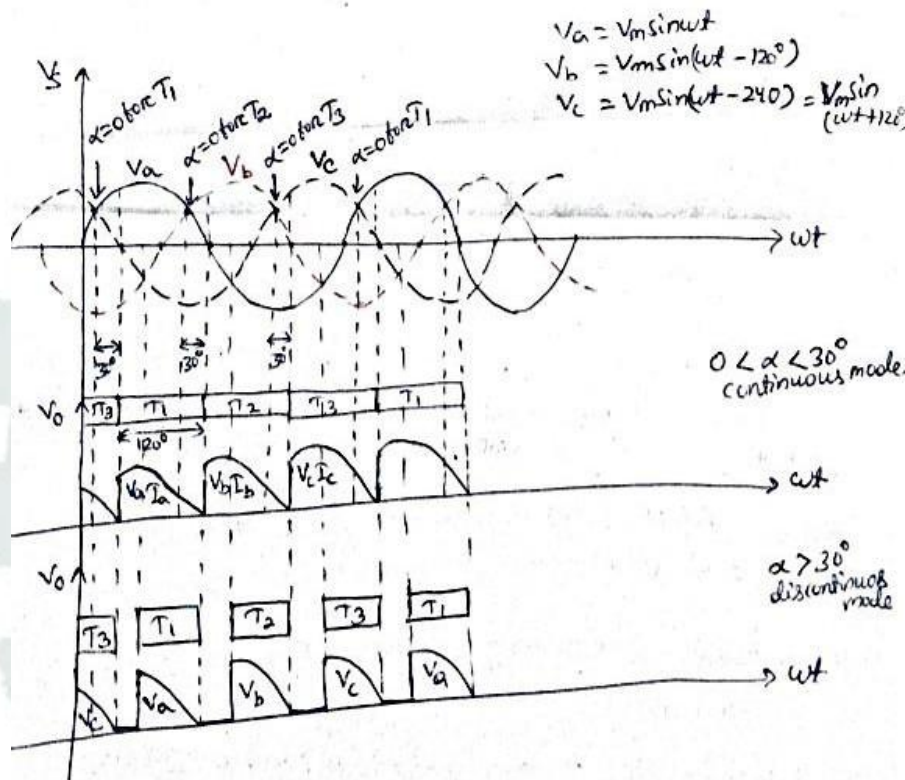 Va = Vm sinωt
Vb = Vm sin(ωt - 120°)
Vc = Vm sin(ωt - 240) = Vm sin
(ωt + 120°)
Vs
α=0 for T1
α=0 for T2
α=0 for T3
α=0 for T1
Va
Vb
Vc
ωt
30°
30°
30°
0 < α < 30°
continuous mode.
Vo
T3
T1
T2
T3
T1
120°
Va Ia
Vb Ib
Vc Ic
ωt
α > 30°
discontinuos
mode
Vo
T3
T1
T2
T3
T1
Vc
Va
Vb
Vc
Va
ωt